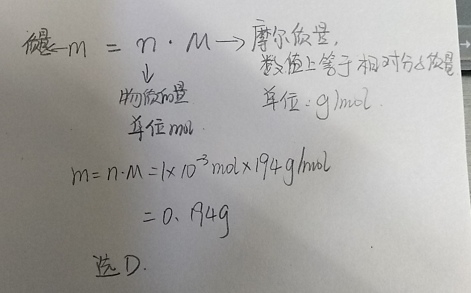 质量←m = n·M→摩尔质量,
数值上等于相对分子质量
↓
物质的量
单位:g/mol.
单位mol.
m=n·M=1×10⁻³mol×194g/mol
=0.194g
选D.